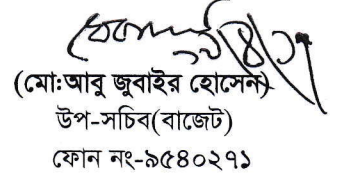 (মো:আবু জুবাইর হোসেন)
উপ-সচিব(বাজেট)
ফোন নং-৯৫৪০২৭১